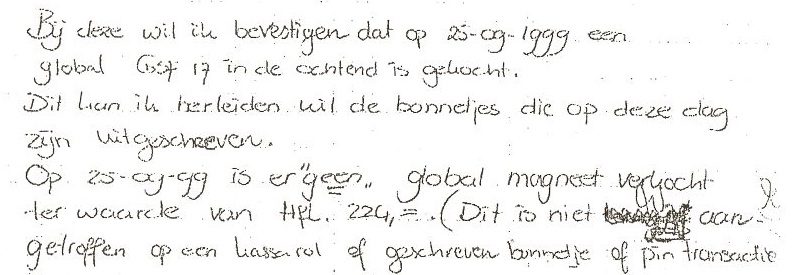 Bij deze wil ik bevestigen dat op 25-09-1999 een
global GSF 17 in de ochtend is gekocht.
Dit kan ik herleiden uit de bonnetjes die op deze dag
zijn uitgeschreven.
Op 25-09-99 is er "geen" global magneet verkocht
ter waarde van Hfl. 224,=. (Dit is niet aan-
getroffen op een kassarol of geschreven bonnetje of pin transactie